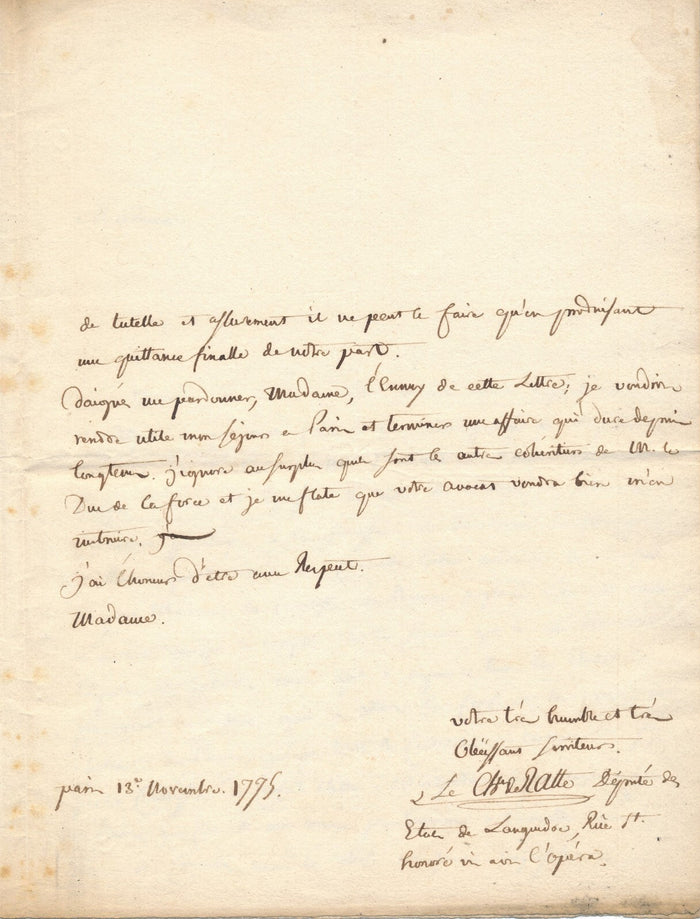 de tutelle et assurement il ne peut le faire qu'en produisant
une quittance finalle de votre part.
Daignés me pardonner, Madame, l'Ennuy de cette Lettre; je voudrois
rendre utile mon séjour a Paris et terminer une affaire qui dure depuis
longtems. j'ignore au surplus quels sont les autres cohéritiers de M. le
Duc de la force et je me flate que votre avocat voudra bien m'en
instruire.
j'ai l'honneur d'etre avec Respect.
Madame.
votre très humble et très
Obéissant serviteur.
Le Ch.er de Ratte Député des
Etats de Languedoc, Rüe St.
honoré vis avis l'opéra.
paris 13.e Novembre. 1775.